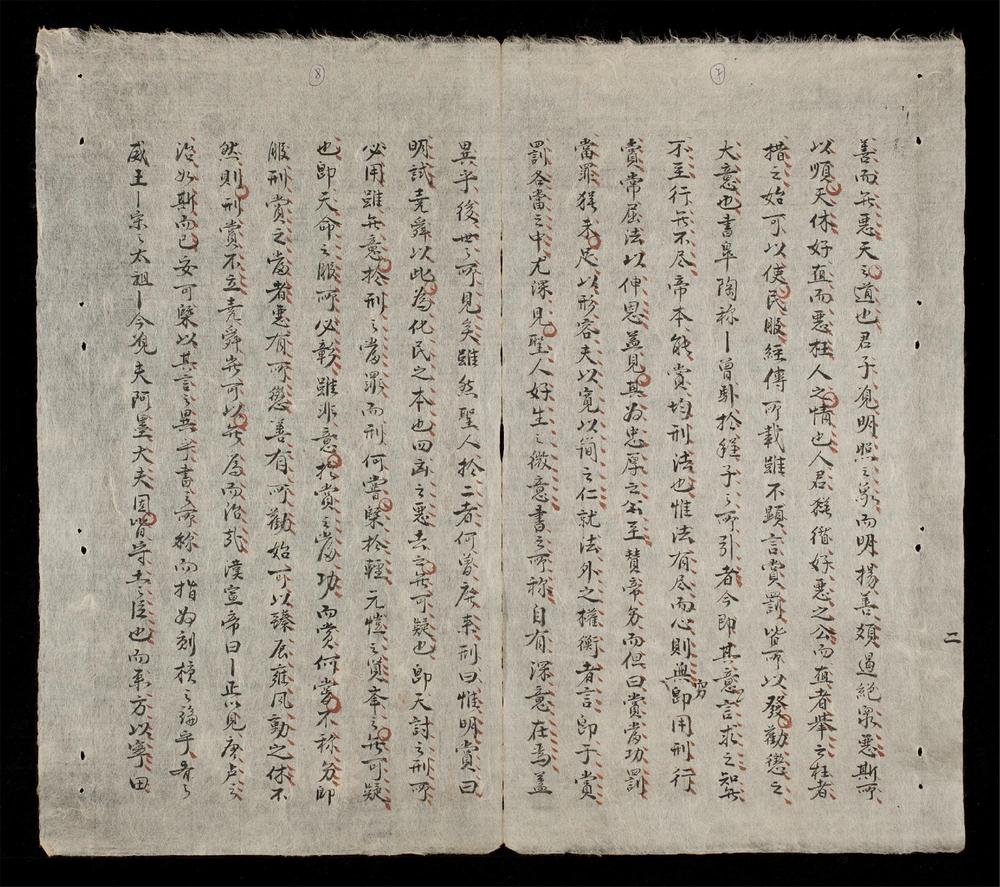 善而無惡天之道也君子覌明照之象而明揚善類遏絶衆惡斯所
以順天休好直而惡枉人之情也人君能循好惡之公而直者举之枉者
措之始可以使民服經傳所载雖不顕言賞罰皆可以發勸懲之
大意也書皐陶称｜曽卧於程子之所引者今即其意言求之知無
不至行無不尽帝本能賞均刑法也惟法有尽而心則無窮即用刑行
賞常屈法以伸恩益見其为忠厚之公至賛帝为而但曰賞當功罰
當罪猶未足以形容夫以寛以简之仁就法外之權衡者言即于賞
罰各當之中尤深見聖人好生之微意書之所称自有深意在焉盖
異乎後世之所見矣雖然聖人於二者何曽廃来刑曰惟明賞曰
明試堯舜以此為化民之本也四凶之惡去之無可疑也即天討之刑所
必用雖無意於刑之當罪而刑何嘗槩於輕元愷之賢奉之無可疑
也即天命之服所必彰雖非意於賞之當功而賞何嘗不称为即
服刑賞之當者惡有所懲善有所勸始可以臻於雍风動之休不
然則刑賞不立堯舜無可以無爲而治哉漢宣帝曰｜正以見唐虞之
治如斯而已安可槩以其言之異乎書之所称而指为刻核之論乎齐之
威王｜宋之太祖｜今覌夫阿墨大夫固皆守土之臣也而東方以寧田
二
7
8